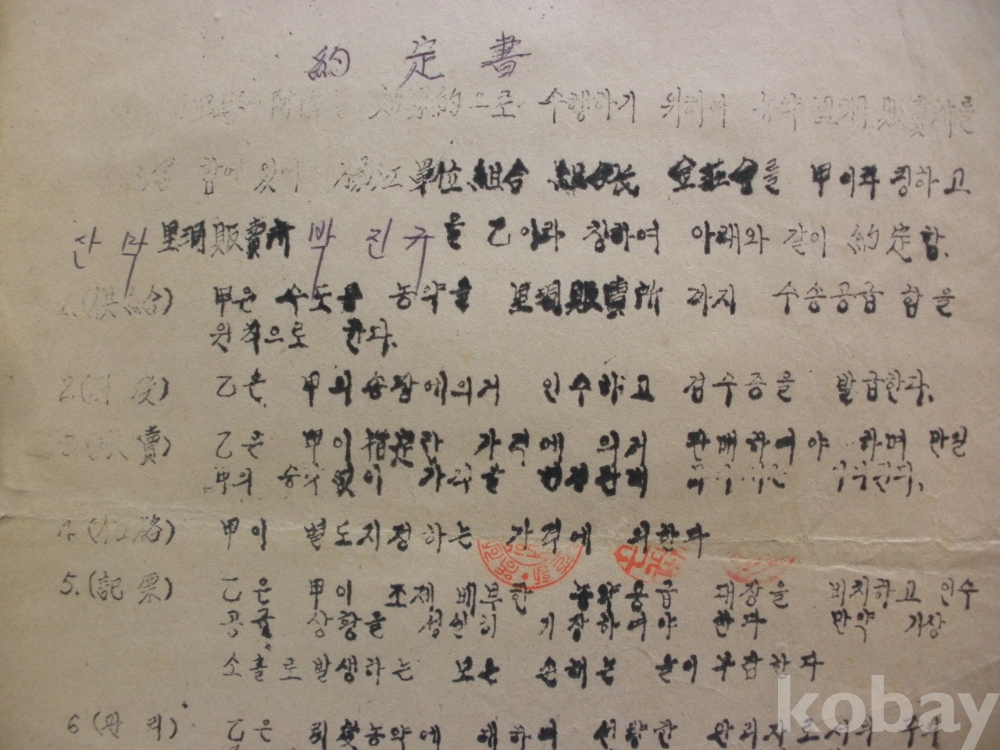 約定書
으로 수행하기 위하여 농약 里洞販賣所를
함에 있어 單位組合 組合長 를 甲이라 칭하고
산 里洞販賣所 박진규을 乙이라 칭하여 아래와 같이 約定함.
1.(供給) 甲은 수도용 농약을 里洞販賣所 까지 수송공급 함을
원칙으로 한다.
2. 乙은 甲의 송장에의거 인수하고 검수증을 발급한다.
3. 賣) 乙은 甲이 指定한 가격에 의거 판매하여야 하며 만일
甲의 승낙없이 가격을
4 甲이 별도지정하는 가격에 의한다
5.(記票) 乙은 甲이 조제 배부한 농약공급 대장을 비치하고 인수
공급 상황을 성실히 기장하여야 한다 만약 기상
소홀로발생하는 모든 손해는 乙이부담한다
6 (관리) 乙은 引受농약에 대하여 선량한 관리자로서의
kobay